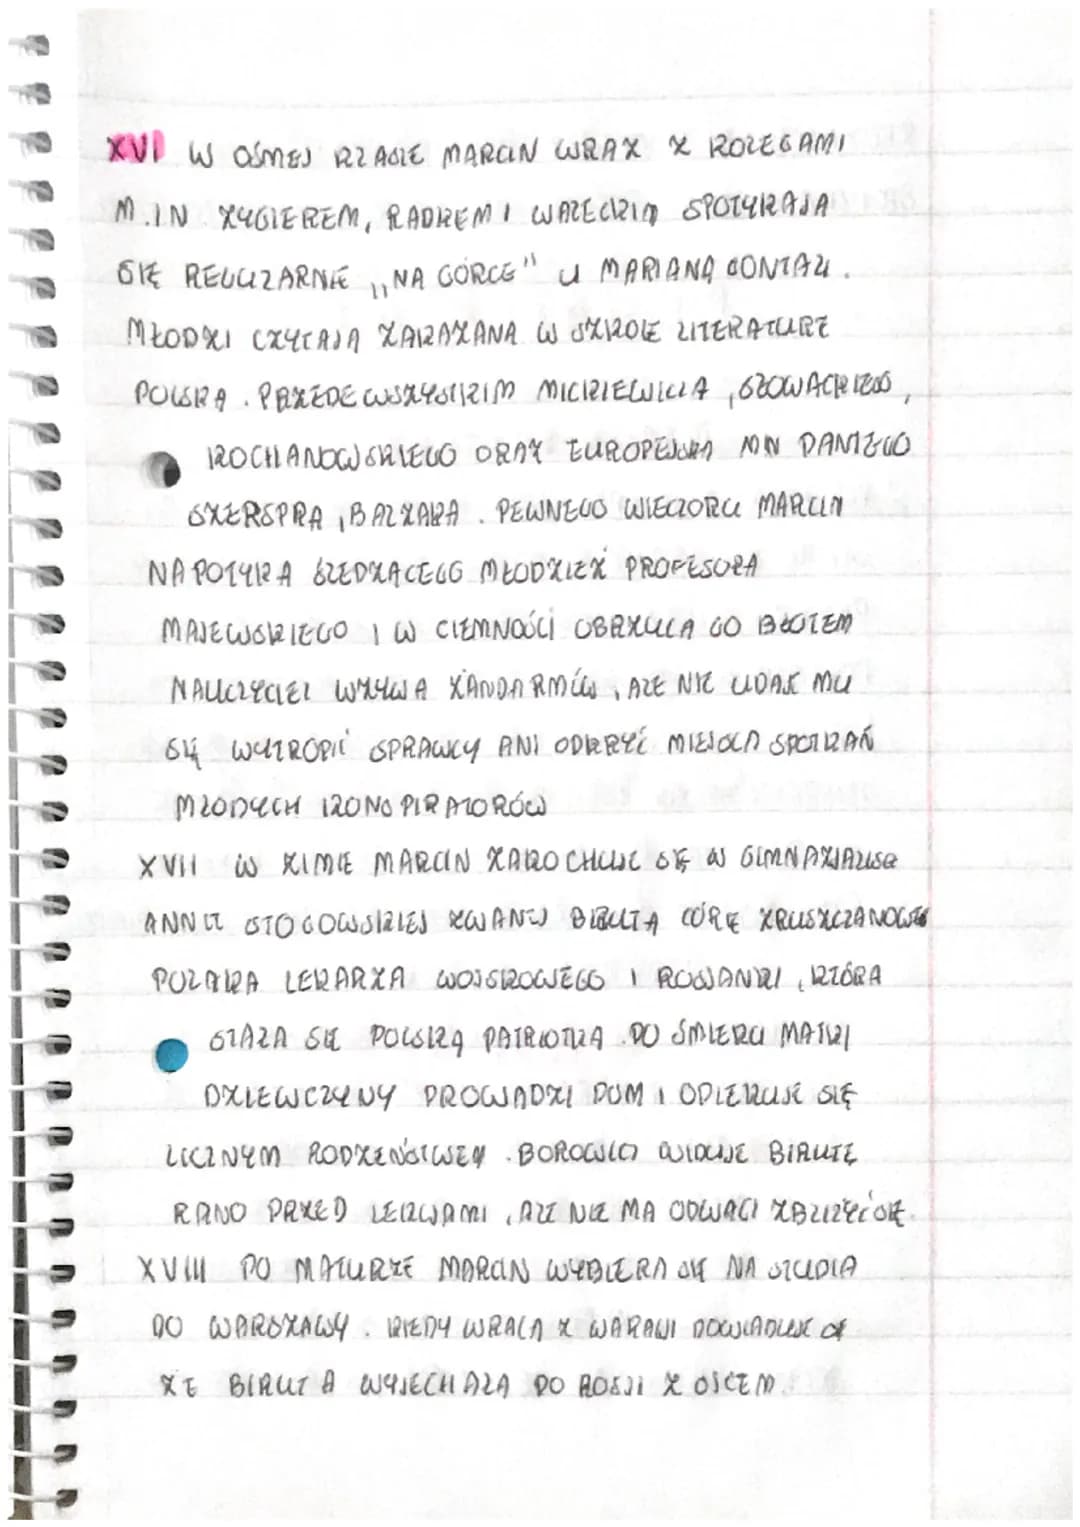 XVI W ÓSMEJ KLASIE MARCIN WRAZ Z KOLEGAMI
M.IN ZYGIEREM, RADKEM I WALECKIM SPOTYKAJA
SIĘ REGULARNIE „NA GÓRCE" U MARIANA GONTALI.
MŁODZI CZYTAJA ZAKAZANA W SZKOLE LITERATURE
POLSKA. PRZEDEWSZYSTKIM MICKIEWICZA, SŁOWACKIEGO,
KOCHANOWSKIEGO ORAZ EUROPEJSKA MIN DANTEGO
SZEKSPRA, BALZAKA. PEWNEGO WIECZORU MARCIN
NAPOTYKA ŚLEDZACEGO MŁODZIEŻ PROFESORA
MAJEWSKIEGO I W CIEMNOŚCI OBRZUCA GO BŁOTEM
NAUCZYCIEL WZYWA ŻANDARMÓW, ALE NIE UDAJE MU
SIĘ WYTROPIĆ SPRAWCY ANI ODKRYĆ MIEJSCA SPOTKAŃ
MŁODYCH KONSPIRATORÓW
XVII W ZIMIE MARCIN ZAKOCHUJE SIĘ W GIMNAZJALISCE
ANNIE STOGOWSKIEJ ZWANEJ BIRUTA CÓRĘ ZRUSZCZANOGO
POLAKA LEKARZA WOJSKOWEGO I ROSJANKI, KTÓRA
STAŁA SIĘ POLSKĄ PATRIOTKA. DO ŚMIERCI MATKI
DZIEWCZYNY PROWADZI DOM I OPIEKUJE SIĘ
LICZNYM RODZEŃSTWEM. BOROWICZ WIDUJE BIRUTĘ
RANO PRZED LEKCJAMI, ALE NIE MA ODWAGI ZBLIŻYĆ SIĘ.
XVIII PO MATURZE MARCIN WYBIERA SIĘ NA STUDIA
DO WARSZAWY. KIEDY WRACA Z WAKACJI DOWIADUJE SIĘ
ŻE BIRUTA WYJECHAŁA DO ROSJI Z OJCEM.